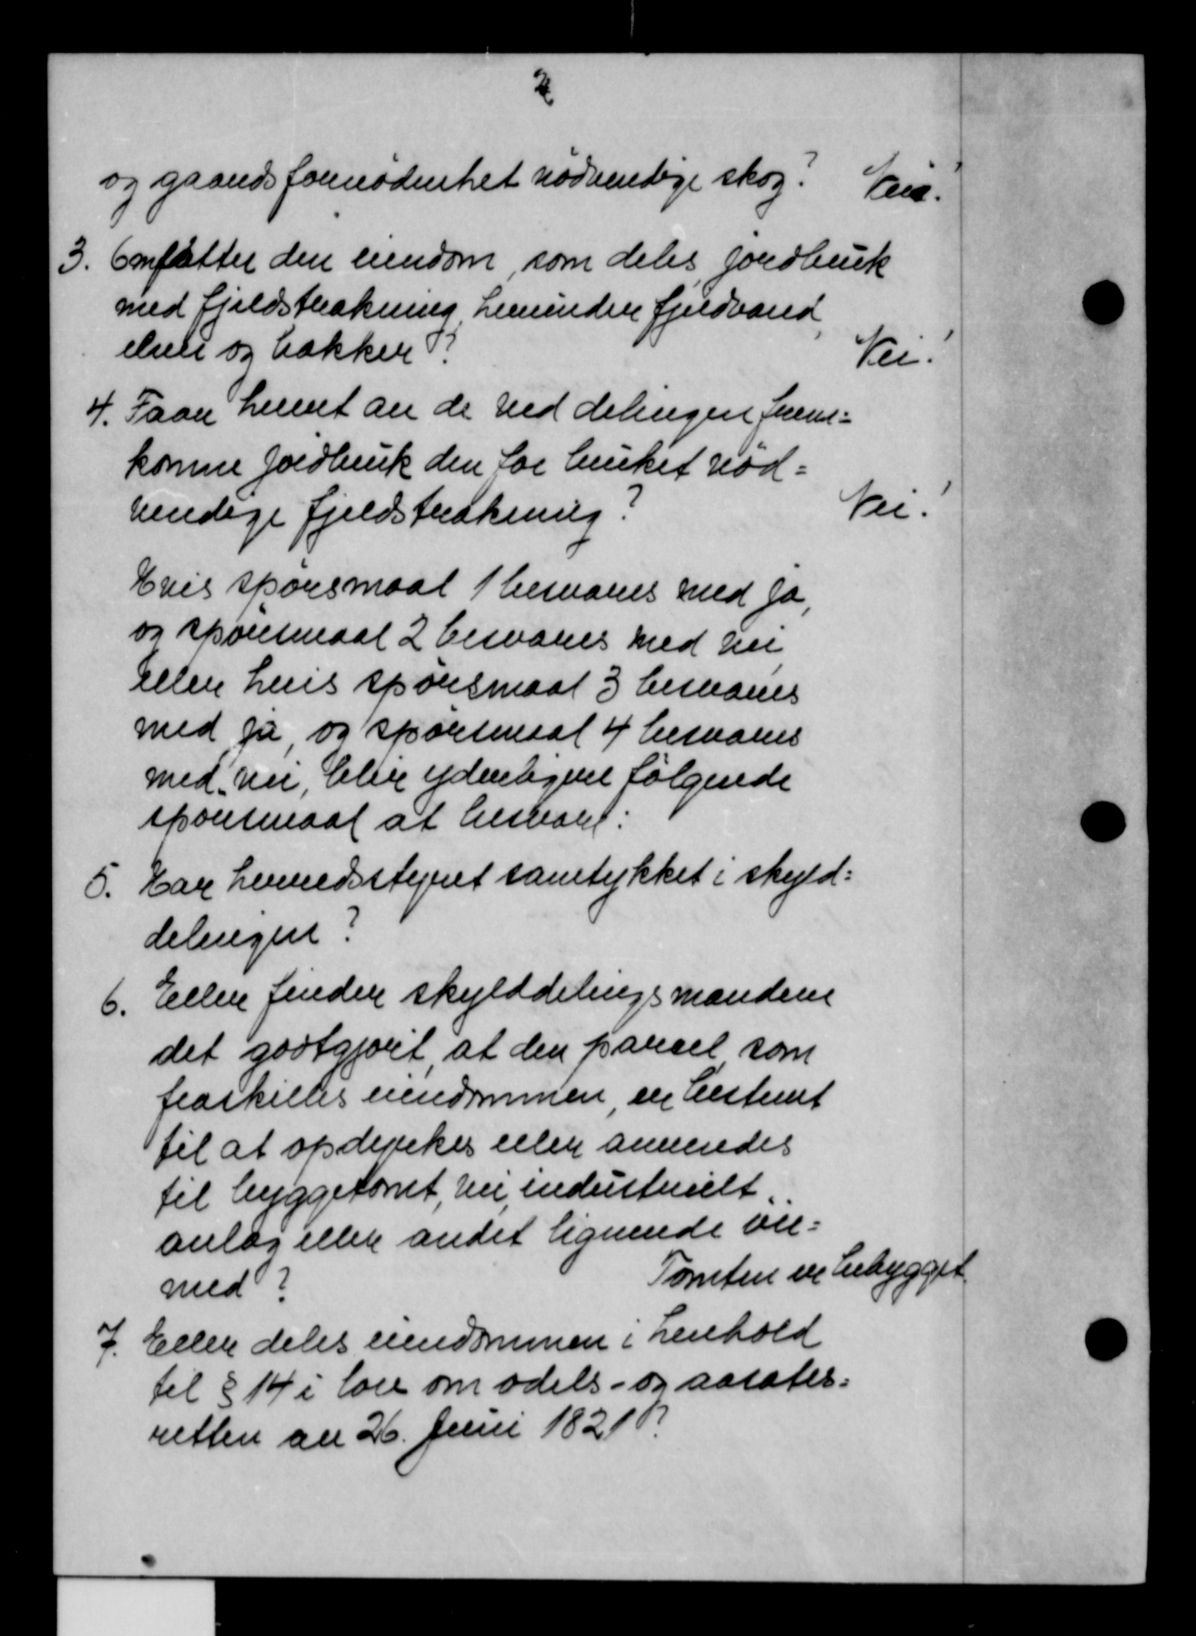 2
og gaardsfornødenhet nödvendige skog? Nei!
3. Omfatter den eiendom, som deles, jordbruk
med fjeldstrækning, herunder fjeldvand,
elver og bækker? Nei!
4. Faar hvert av de ved delingen frem=
komne jordbruk den for bruket nöd=
vendige fjeldstrækning? Nei!
Hvis spörsmaal 1 besvares med ja,
og spörsmaal 2 besvares med nei,
eller hvis spörsmaal 3 besvares
med ja, og spörsmaal 4 besvares
med nei, blir yderligere fölgende
spörsmaal at besvare:
5. Har herredsstyret samtykket i skyld=
delingen?
6. Eller finder skylddelingsmændene
det godtgjort, at den parcel, som
fraskilles eiendommen, er bestemt
til at opdyrkes eller anvendes
til byggetomt, vei, industrielt
anlæg eller andet lignende öie=
med? Tomten er bebygget.
7. Eller deles eiendommen i henhold
til § 14 i lov om odels- og aasætes=
retten av 26. Juni 1821?